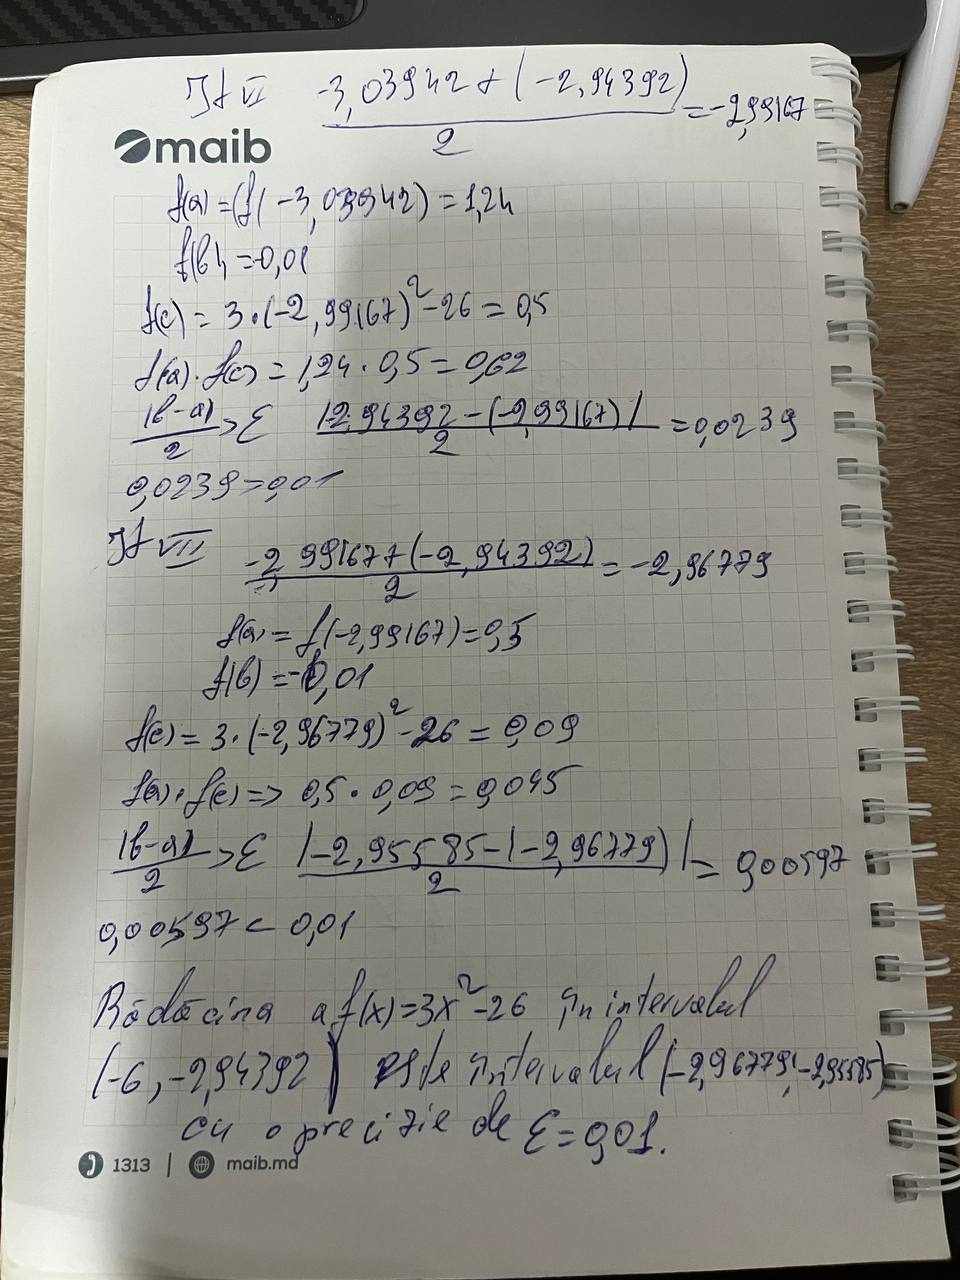 It VI (-3,03942 + (-2,94392))/2 = -2,99167
maib
f(a) = (f(-3,03942) = 1,24
f(b) = -0,01
f(c) = 3·(-2,99167)² - 26 = 0,5
f(a)·f(c) = 1,24 · 0,5 = 0,62
|b-a|/2 > ε |2,94392 - (-2,99167)|/2 = 0,0239
0,0239 > 0,01
It VII (-2,99167 + (-2,94392))/2 = -2,96779
f(a) = f(-2,99167) = 0,5
f(b) = -0,01
f(c) = 3·(-2,96779)² - 26 = 0,09
f(a)·f(c) => 0,5 · 0,09 = 0,045
|b-a|/2 > ε |-2,95585 - (-2,96779)|/2 = 0,00597
0,00597 < 0,01
Rădăcina a f(x) = 3x² - 26 în intervalul
(-6, -2,94392) este intervalul (-2,96779; -2,95585)
cu o precizie de ε = 0,01.
1313 | maib.md